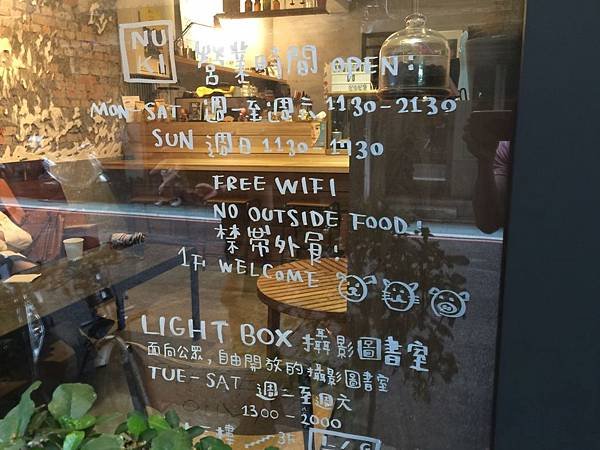 NU
KI
營業時間 OPEN:
MON-SAT 週一至週六 1130-2130
SUN 週日 1130-1730
FREE WIFI
NO OUTSIDE FOOD!
禁帶外食!
1F WELCOME
LIGHT BOX 攝影圖書室
面向公眾,自由開放的攝影圖書室
TUE-SAT 週二至週六
1300-2000
三樓 3F